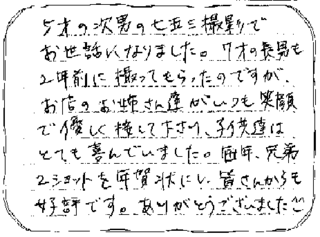 5才の次男の七五三撮影で
お世話になりました。7才の長男も
2年前に撮ってもらったのですが、
お店のお姉さん達がいつも笑顔
で優しく接して下さり、子供達は
とても喜んでいました。毎年、兄弟
2ショットを年賀状にし、皆さんからも
好評です。ありがとうございました